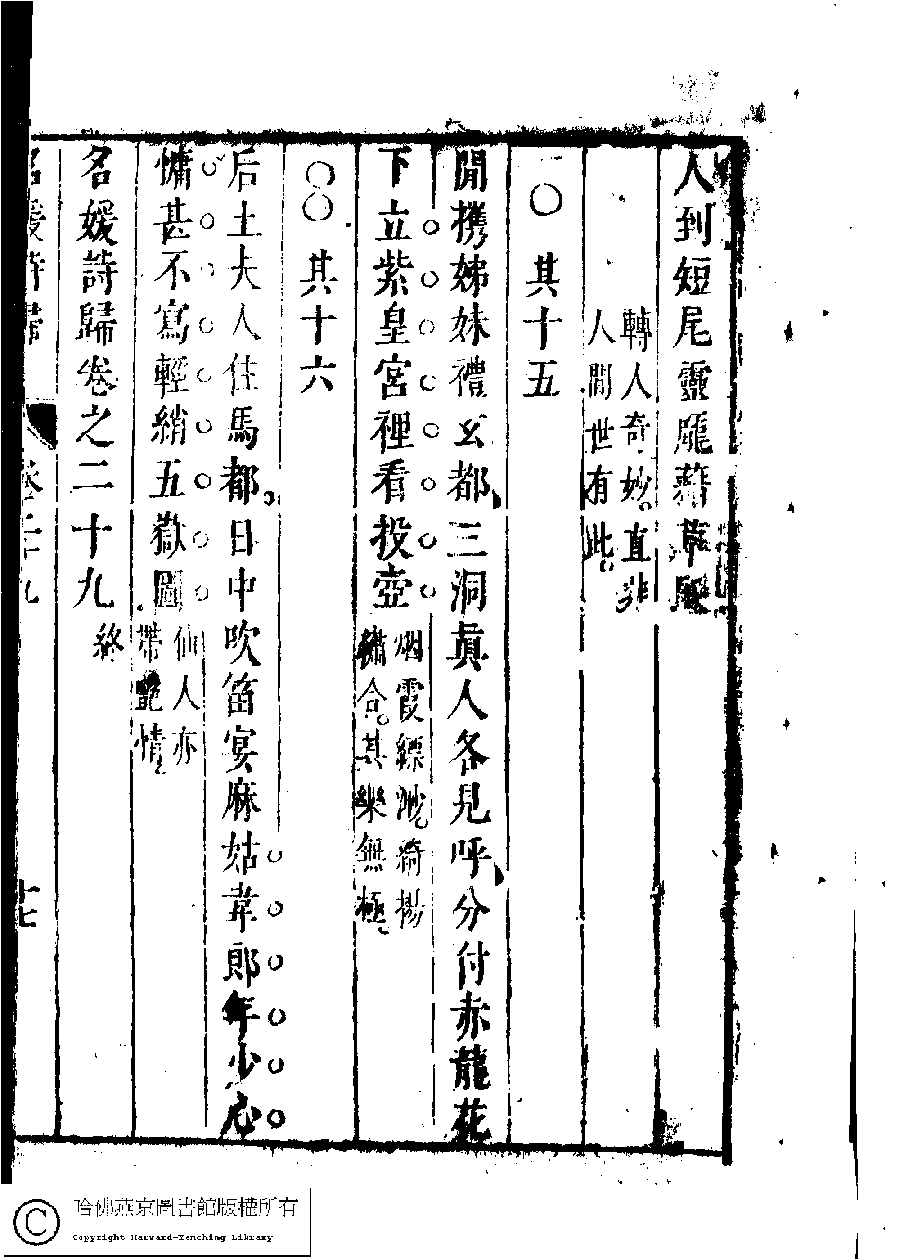 人到短尾靈尨藉草眠
轉人奇妙直非
人間世有此
○其十五
閒携姊妹禮玄都三洞眞人各見呼分付赤龍花
下立紫皇宮裡看投壺
烟霞縹渺綺揚
繡合其樂無極
○○其十六
后土夫人住馬都日中吹笛宴麻姑韋郎年少心
慵甚不寫輕綃五嶽圖
仙人亦
帶艷情
名媛詩歸卷之二十九
終
名媛詩歸
卷二十九
十七
哈佛燕京圖書館版權所有
Copyright Harvard-Yenching Library